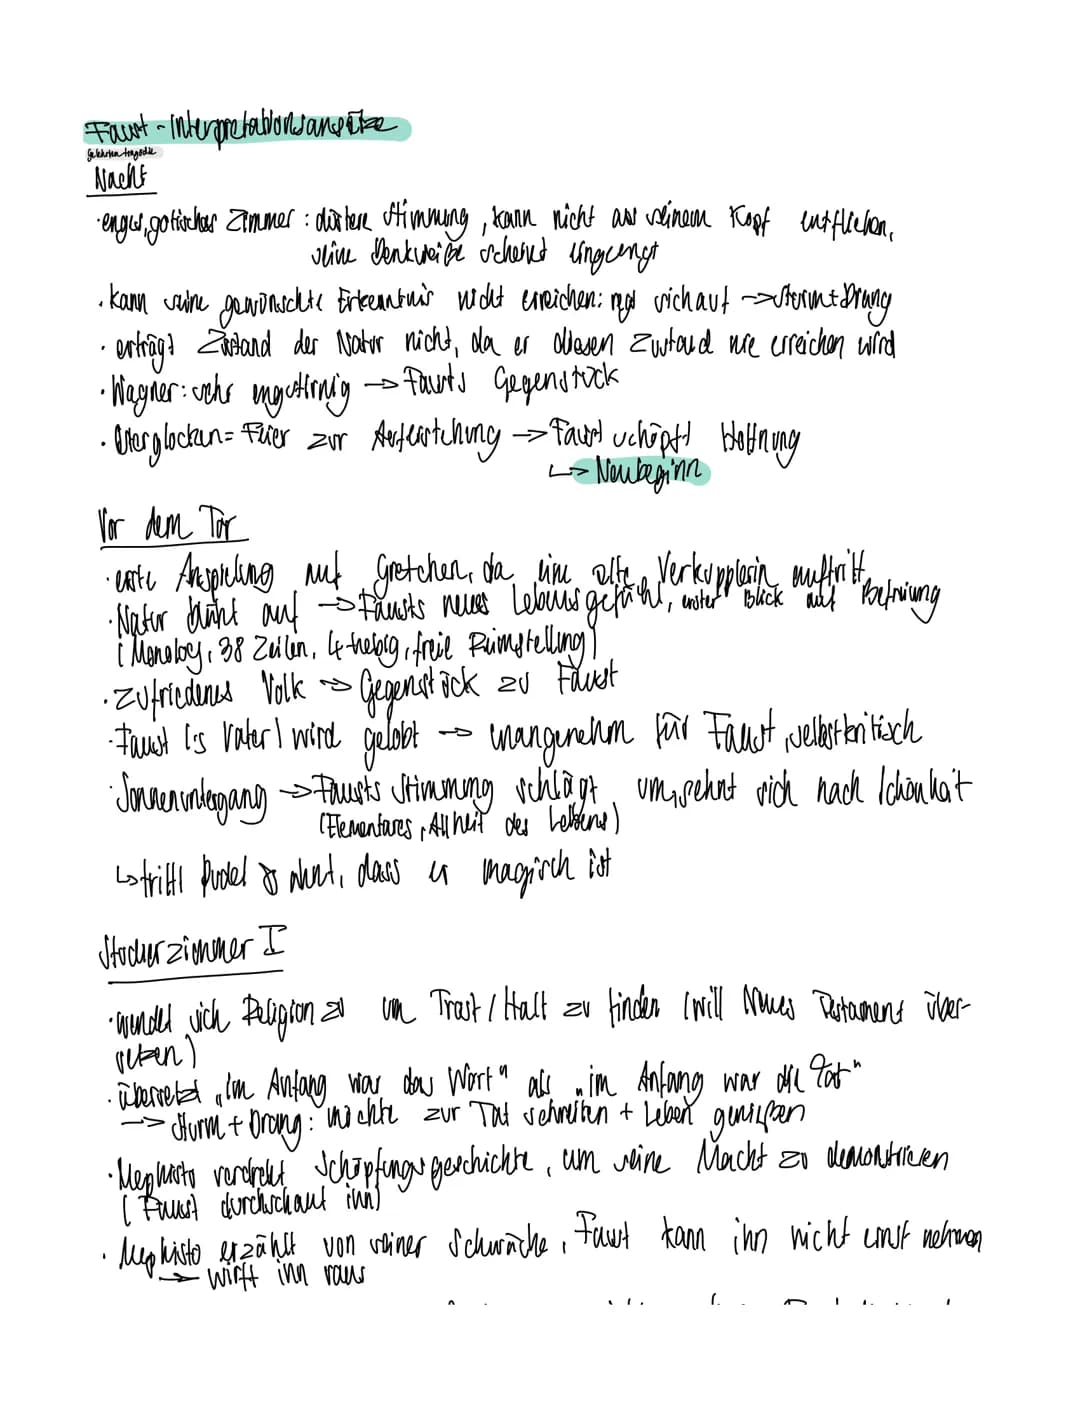 Faust - Interpretationsansätze
Gelehrtentragödie
Nacht
· enges, gotisches Zimmer: düstere Stimmung, kann nicht aus seinem Kopf entfliehen,
seine Denkweise scheint eingeengt
· kann seine gewünschte Erkenntnis nicht erreichen: regt sich auf -> Sturm + Drang
· erträgt Zustand der Natur nicht, da er diesen Zustand nie erreichen wird
· Wagner: sehr engstirnig -> Fausts Gegenstück
· Osterglocken = Feier zur Auferstehung -> Faust schöpft Hoffnung
↳ Neubeginn
Vor dem Tor
· erste Anspielung auf Gretchen, da eine alte Verkupplerin auftritt
· Natur blüht auf -> Fausts neues Lebensgefühl, erster Blick auf Befreiung
(Monolog, 38 Zeilen, 4-hebig, freie Reimstellung)
· zufriedenes Volk -> Gegenstück zu Faust
· Faust ('s Vater) wird gelobt -> unangenehm für Faust, selbstkritisch
· Sonnenuntergang -> Fausts Stimmung schlägt um, sehnt sich nach Schönheit
(Elementares, Allheit des Lebens)
↳ trifft Pudel & ahnt, dass er magisch ist
Studierzimmer I
· wendet sich Religion zu um Trost / Halt zu finden (will Neues Testament über-
setzen)
· übersetzt „Im Anfang war das Wort" als „im Anfang war die Tat"
-> Sturm + Drang: möchte zur Tat schreiten + Leben genießen
· Mephisto verdreht Schöpfungsgeschichte, um seine Macht zu demonstrieren
(Faust durchschaut ihn)
· Mephisto erzählt von seiner Schwäche, Faust kann ihn nicht ernst nehmen
-> wirft ihn raus